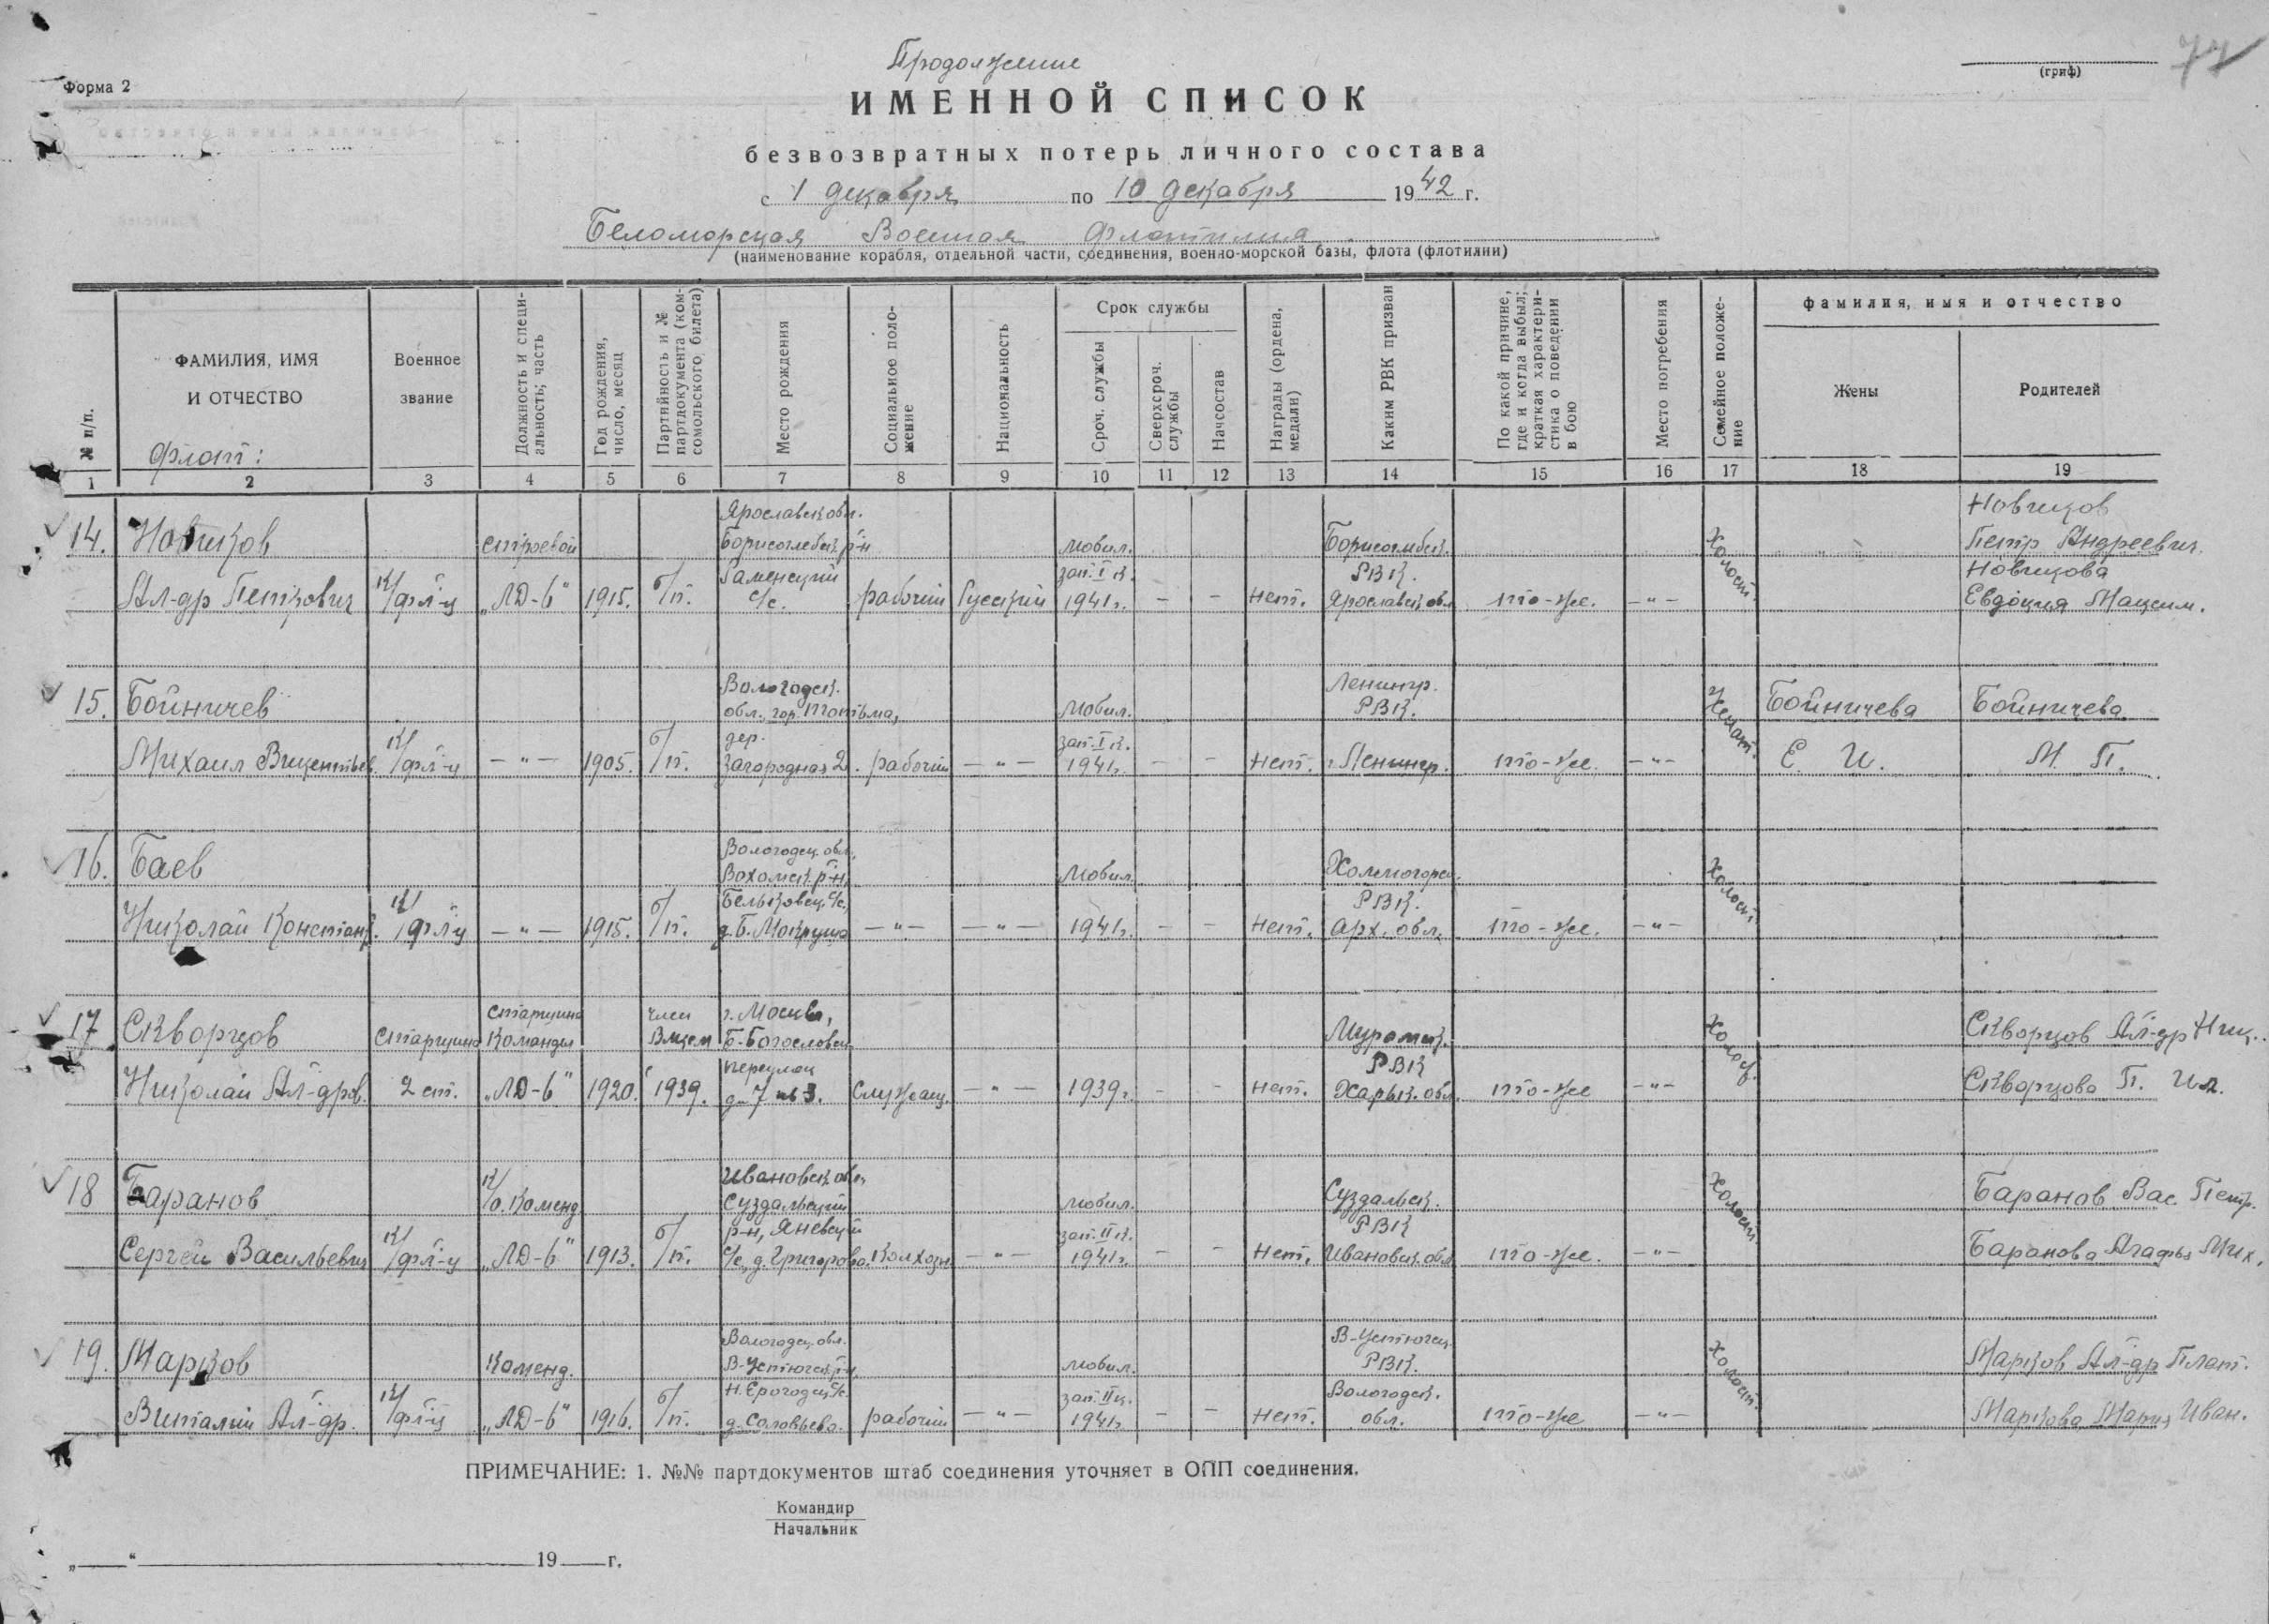 Продолжение
77
(гриф)
Форма 2
ИМЕННОЙ СПИСОК
безвозвратных потерь личного состава
с 1 декабря по 10 декабря 1942 г.
Беломорская Военная Флотилия
(наименование корабля, отдельной части, соединения, военно-морской базы, флота (флотилии)
№ п/п.
ФАМИЛИЯ, ИМЯ
И ОТЧЕСТВО
Флот:
Военное
звание
Должность и специ-
альность; часть
Год рождения,
число, месяц
Партийность и №
партдокумента (ком-
сомольского билета)
Место рождения
Социальное поло-
жение
Национальность
Срок службы
Сроч. службы
Сверхсроч.
службы
Начсостав
Награды (ордена,
медали)
Каким РВК призван
По какой причине,
где и когда выбыл;
краткая характери-
стика о поведении
в бою
Место погребения
Семейное положе-
ние
фамилия, имя и отчество
Жены
Родителей
1 2 3 4 5 6 7 8 9 10 11 12 13 14 15 16 17 18 19
14. Новчиков
Ал-др Петрович
К/фл-ц
строевой
"ЛД-6"
1915.
б/п.
Ярославск обл.
Борисоглебск. р-н
Раменский
с/с.
рабочий
Русский
мобил.
зап. I к.
1941г.
- -
нет.
Борисоглебск.
РВК.
Ярославск обл.
то-же.
-"-
Холост.
Новчиков
Петр Андреевич.
Новчикова
Евдокия Максим.
15. Бойничев
Михаил Викентьев.
К/фл-ц
-"-
1905.
б/п.
Вологодск.
обл. гор. Тотьма,
дер.
Загородная 2.
рабочий
-"-
мобил.
зап. I к.
1941г.
- -
нет.
Ленингр.
РВК.
г. Ленингр.
то-же.
-"-
Женат.
Бойничева
Е. И.
Бойничева
М. П.
16. Баев
Николай Констант.
К/фл-ц
-"-
1915.
б/п.
Вологодск. обл.,
Вохомск. р-н,
Бельковец. с/с.,
д. Б. Мокруша
-"-
-"-
Мобил.
1941г.
- -
нет.
Холмогорск.
РВК.
Арх. обл.
то-же.
-"-
Холост
17 Скворцов
Николай Ал-дров.
старшина
2 ст.
старшина
Команды
"ЛД-6"
1920.
член
Влксм
1939.
г. Москва,
Б-Богословск
переулок
д-7 кв 3.
Служащ.
-"-
1939г.
- -
нет.
Муромск.
РВК
Харьк. обл.
то-же
-"-
Холост.
Скворцов Ал-др Ник.
Скворцова П. Ил.
18 Баранов
Сергей Васильевич
К/фл-ц
К/о. Коменд
"ЛД-6"
1913.
б/п.
Ивановск обл,
Суздальский
р-н, Яневский
с/с, д. Григорово.
Колхозн
-"-
мобил.
зап. II к.
1941г.
- -
нет.
Суздальск.
РВК
Ивановск. обл
то-же.
-"-
Холост
Баранов Вас. Петр.
Баранова Агафья Мих.
19. Марков
Виталий Ал-др.
К/фл-ц
Коменд.
"ЛД-6"
1916.
б/п.
Вологодск. обл.
В-Устюгск. р-н,
Н. Ерогодск с/с.
д. Соловьево.
рабочий
-"-
мобил.
зап. II к.
1941г
- -
нет.
В-Устюгск.
РВК.
Вологодск.
обл.
то-же
-"-
Холост.
Марков Ал-др Плат.
Маркова Мария Иван.
ПРИМЕЧАНИЕ: 1. №№ партдокументов штаб соединения уточняет в ОПП соединения.
Командир
Начальник
„ “ 19 г.